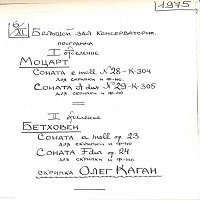 1975
6/XI Большой зал Консерватории.
программа
I отделение
Моцарт
Соната e moll №28-К-304
для скрипки и ф-но.
Соната A dur №29-К-305
для скрипки и ф-но
II отделение
Бетховен
Соната a moll op. 23
для скрипки и ф-но
Соната F dur op. 24
для скрипки и ф-но
скрипка Олег Каган